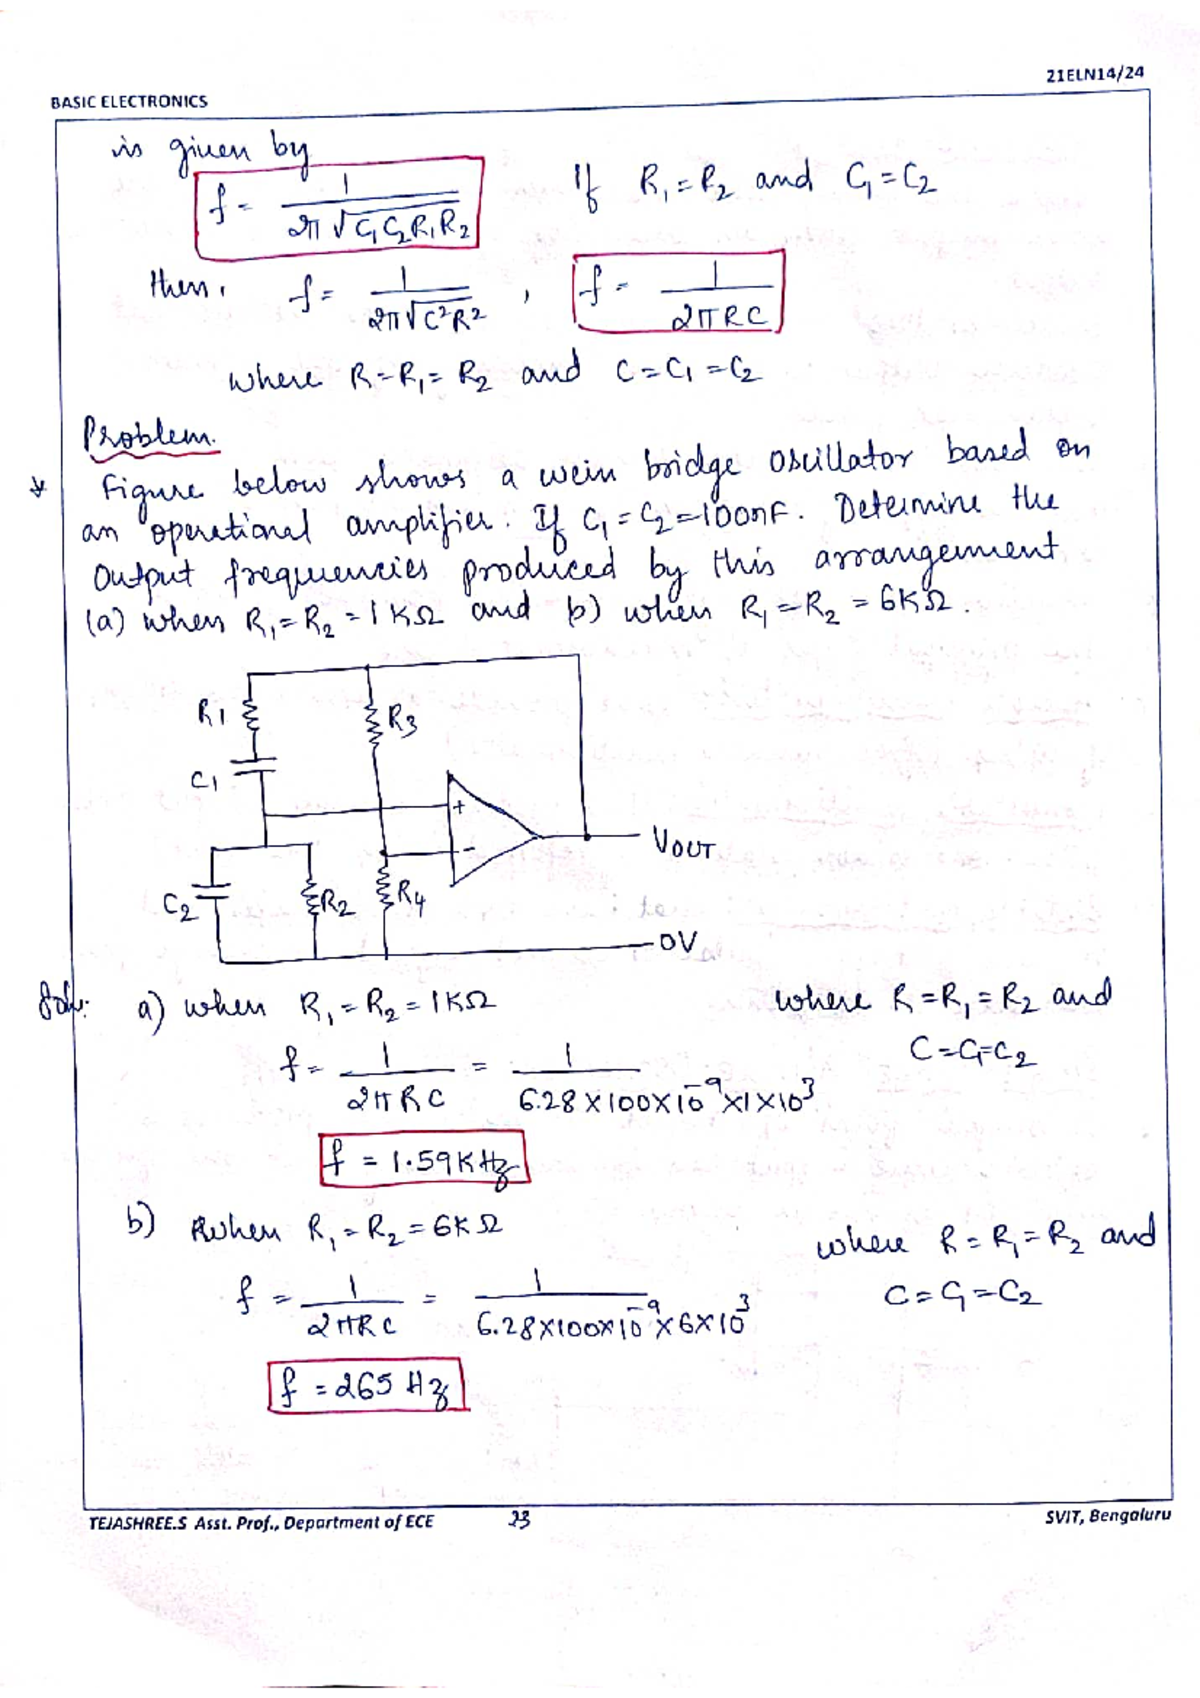 21ELN14/24
BASIC ELECTRONICS
is given by
f = 1 / 2π √C₁C₂R₁R₂
If R₁ = R₂ and C₁ = C₂
then, f = 1 / 2π√C²R² , f = 1 / 2πRC
where R = R₁ = R₂ and C = C₁ = C₂
Problem.
* Figure below shows a wein bridge oscillator based on
an operational amplifier. If C₁ = C₂ = 100nF. Determine the
Output frequencies produced by this arrangement
(a) when R₁ = R₂ = 1KΩ and b) when R₁ = R₂ = 6KΩ.
R1
R3
C1
+
-
VOUT
C2
R2
R4
0V
Soln:
a) when R₁ = R₂ = 1KΩ
where R = R₁ = R₂ and
C = C₁ = C₂
f = 1 / 2πRC = 1 / 6.28 X 100X10⁻⁹ X1X10³
f = 1.59KHz
b) when R₁ = R₂ = 6KΩ
where R = R₁ = R₂ and
C = C₁ = C₂
f = 1 / 2πRC = 1 / 6.28X100X10⁻⁹ X6X10³
f = 265 Hz
TEJASHREE.S Asst. Prof., Department of ECE
23
SVIT, Bengaluru